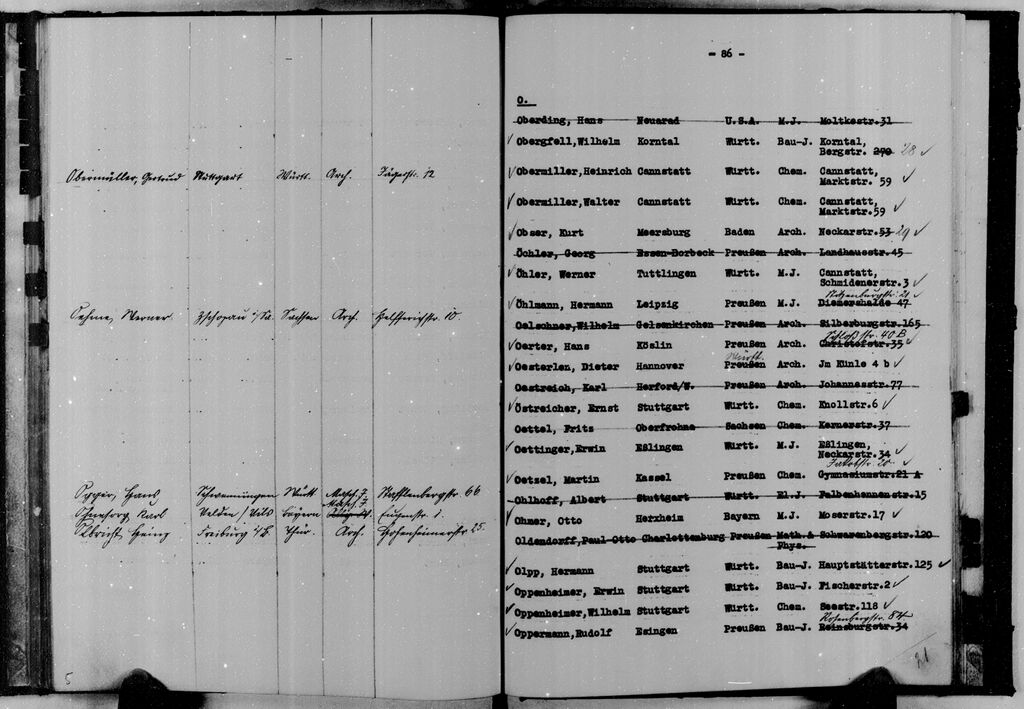 Obermüller, Gertrud Stuttgart Württ. Arch. Jägerstr. 12
Oehme, Werner Zschopau i/Sa. Sachsen Arch. Helfferichstr. 10
Hans Schwenningen Württ Masch.J. Stafflenbergstr. 66
Ohnesorg, Karl Velden / Vils Bayern Masch.J.
Olbricht Heinz Freiburg i/B. Thür. Arch. Hohenheimerstr 25.
5
- 86 -
O.
Oberding, Hans Neuarad U.S.A. M.J. Moltkestr.31
Obergfell,Wilhelm Korntal Württ. Bau-J. Korntal,
Bergstr. 270 28
Obermiller,Heinrich Cannstatt Württ. Chem. Cannstatt,
Marktstr. 59
Obermiller,Walter Cannstatt Württ. Chem. Cannstatt,
Marktstr.59
Obser, Kurt Meersburg Baden Arch. Neckarstr.53 29
Öchler, Georg Essen-Borbeck Preußen Arch. Landhausstr.45
Öhler, Werner Tuttlingen Württ. M.J. Cannstatt,
Schmidenerstr.3
Öhlmann, Hermann Leipzig Preußen M.J. Diemershalde 47
Oelschner,Wilhelm Gelsenkirchen Preußen Arch. Silberburgstr.165
Schloßstr. 40B
Oerter, Hans Köslin Preußen Arch. Christofstr.35
Württ.
Oesterlen, Dieter Hannover Preußen Arch. Jm Künle 4 b
Oestreich, Karl Herford/W. Preußen Arch. Johannesstr.77
Östreicher, Ernst Stuttgart Württ. Chem. Knollstr.6
Oettel, Fritz Oberfrohna Sachsen Chem. Kernerstr.37
Oettinger,Erwin Eßlingen Württ. M.J. Eßlingen,
Neckarstr.34
Jakobstr. 20
Oetzel, Martin Kassel Preußen Chem. Gymnasiumstr.21 A
Ohlhoff, Albert Stuttgart Württ. El.J. Falbenhennenstr.15
Ohmer, Otto Herxheim Bayern M.J. Moserstr.17
Oldendorff,Paul-Otto Charlottenburg Preußen Math.& Schwarenbergstr.120
Phys.
Olpp, Hermann Stuttgart Württ. Bau-J. Hauptstätterstr.125
Oppenheimer, Erwin Stuttgart Württ. Bau-J. Fischerstr.2
Oppenheimer,Wilhelm Stuttgart Württ. Chem. Seestr.118
Rosenbergstr. 84
Oppermann,Rudolf Esingen Preußen Bau-J. Reinsburgstr.34
21